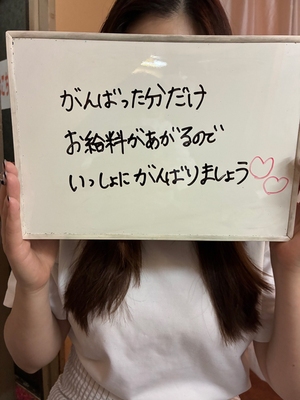 がんばった分だけ
お給料があがるので
いっしょにがんばりましょう♡♡